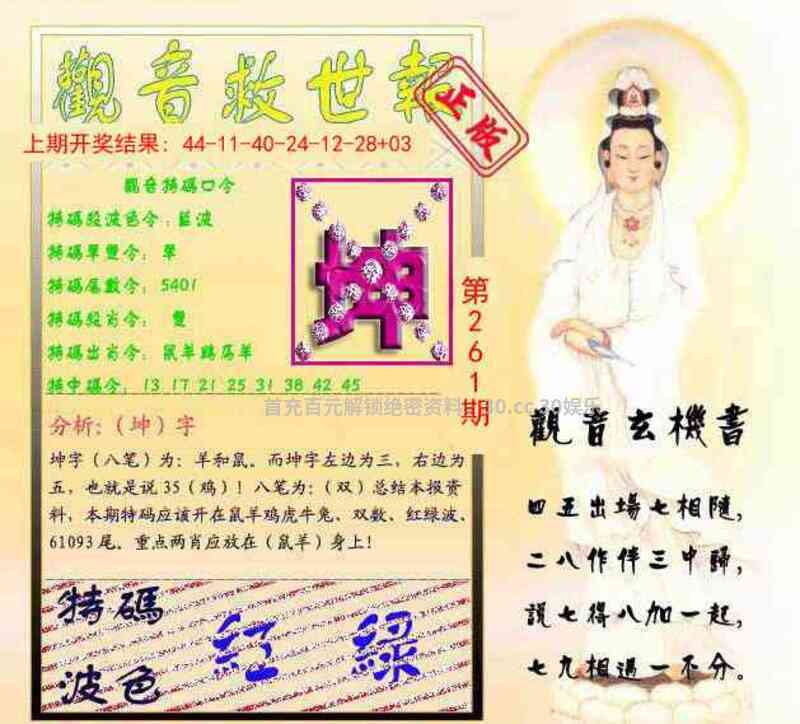 觀音救世報
正版
上期开奖结果：44-11-40-24-12-28+03
觀音特碼口令
特碼段波色令：藍波
特碼單雙令：單
特碼尾數令：5401
特碼段肖令：雙
特碼出肖令：鼠羊鷄馬羊
特中碼令：13 17 21 25 31 38 42 45
坤
第261期
首充百元解锁绝密资料
30.cc 30娱乐
分析：（坤）字
坤字（八笔）为：羊和鼠。而坤字左边为三，右边为
五，也就是说35（鸡）！八笔为：（双）总结本报资
料，本期特码应该开在鼠羊鸡虎牛兔、双数、红绿波、
61093尾。重点两肖应放在（鼠羊）身上！
特碼
波色
紅 綠
觀音玄機書
四五出場七相隨，
二八作伴三中歸，
說七得八加一起，
七九相遇一不分。